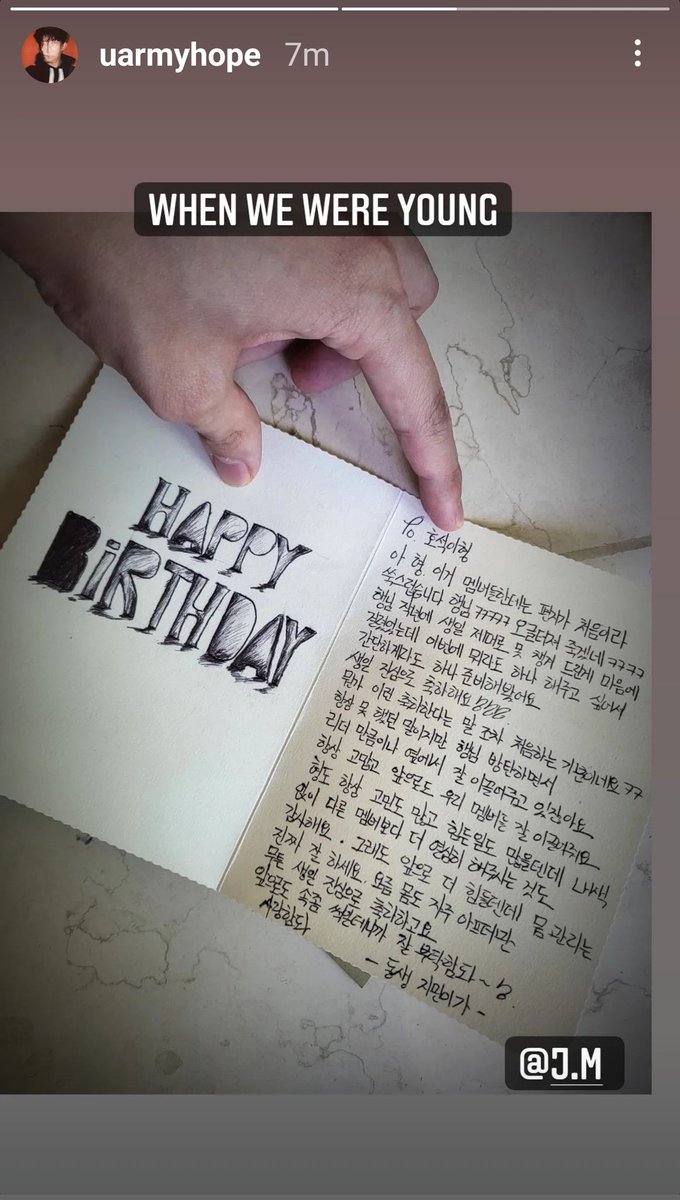 uarmyhope 7m
WHEN WE WERE YOUNG
HAPPY
BiRTHDAY
To. 호석이형
아 형 이거 멤버들한테는 편지가 처음이라
쑥스럽습니다 형님 ㅋㅋㅋㅋㅋ 오글터져 죽겠네 ㅋㅋㅋㅋ
형님 작년에 생일 제대로 못 챙겨 드린게 마음에
걸렸었는데 이번에 뭐라도 하나 해주고 싶어서
간단한게라도 하나 준비해봤어요
생일 진심으로 축하해요
뭔가 이런 축하한다는 말 조차 처음하는 기분이네요 ㅋㅋ
항상 못 했던 말이지만 형님 방탄하면서
리더 만큼이나 옆에서 잘 이끌어주고 있잖아요
항상 고맙고 앞으로도 우리 멤버들 잘 이끌어줘요
형도 항상 고민도 많고 힘든일도 많을텐데 내색
없이 다른 멤버보다 더 열심히 해주시는 것도
감사해요. 그래도 앞으로 더 힘들텐데 몸 관리는
진짜 잘 하세요 요즘 몸도 자주 아프더만
무튼 생일 진심으로 축하하고요
앞으로도 속좀 썩일테니까 잘 부탁함돠~
사랑함돠
- 동생 지민이가 -
@J.M